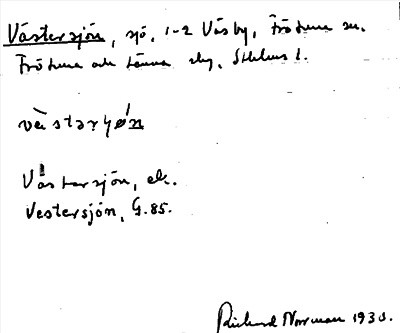 Västersjön, sjö, 1-2 Väsby, Frötuna sn.
Frötuna och Länna skg, Sthlms l.
Västersjön, ek.
Vestersjön, G.85.
Richard Norrman 1930.